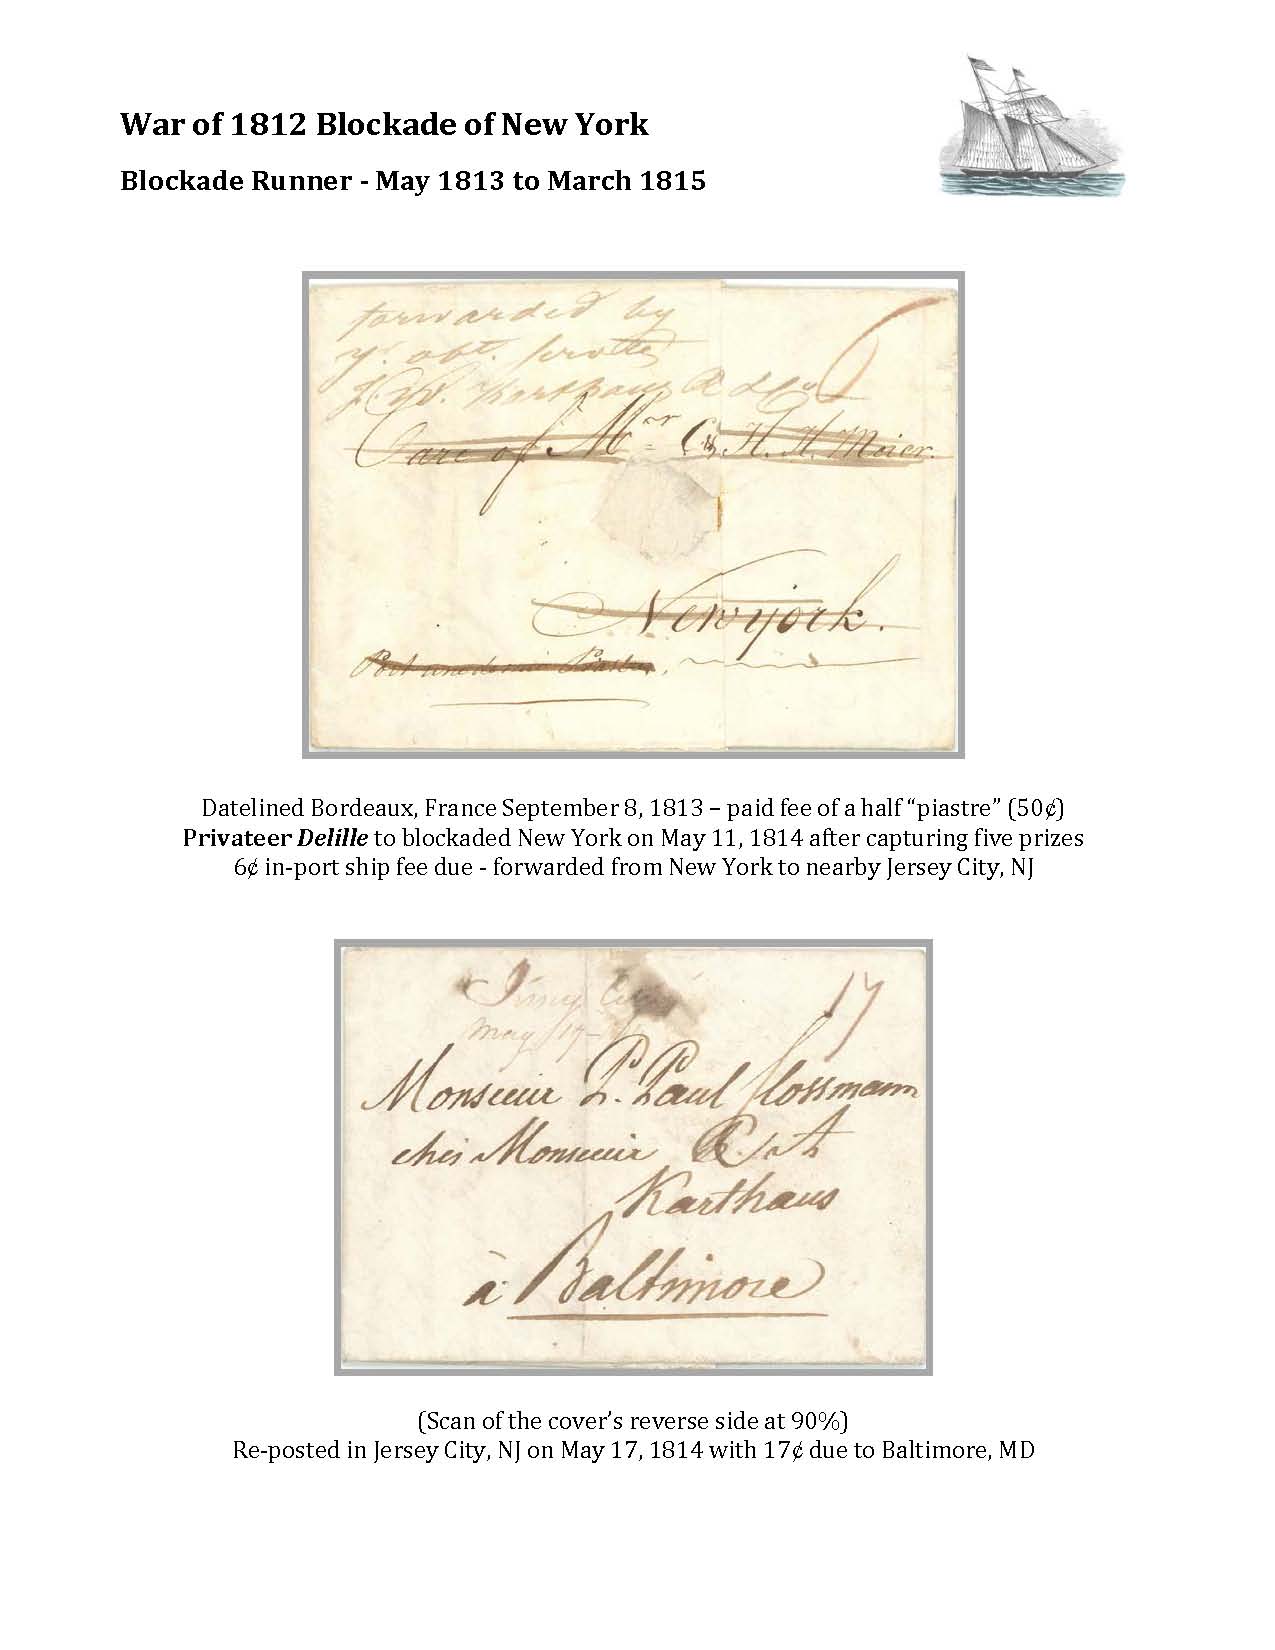 War of 1812 Blockade of New York
Blockade Runner - May 1813 to March 1815
forwarded by
yr. obt. servts
6
Care of Mr C. & H. H. Meier.
New york.
Port une demie Piastre,
Datelined Bordeaux, France September 8, 1813 – paid fee of a half “piastre” (50¢)
Privateer Delille to blockaded New York on May 11, 1814 after capturing five prizes
6¢ in-port ship fee due - forwarded from New York to nearby Jersey City, NJ
17
May 17
Monsieur P. Paul
chés Monsieur
Karthaus
à Baltimore
(Scan of the cover’s reverse side at 90%)
Re-posted in Jersey City, NJ on May 17, 1814 with 17¢ due to Baltimore, MD